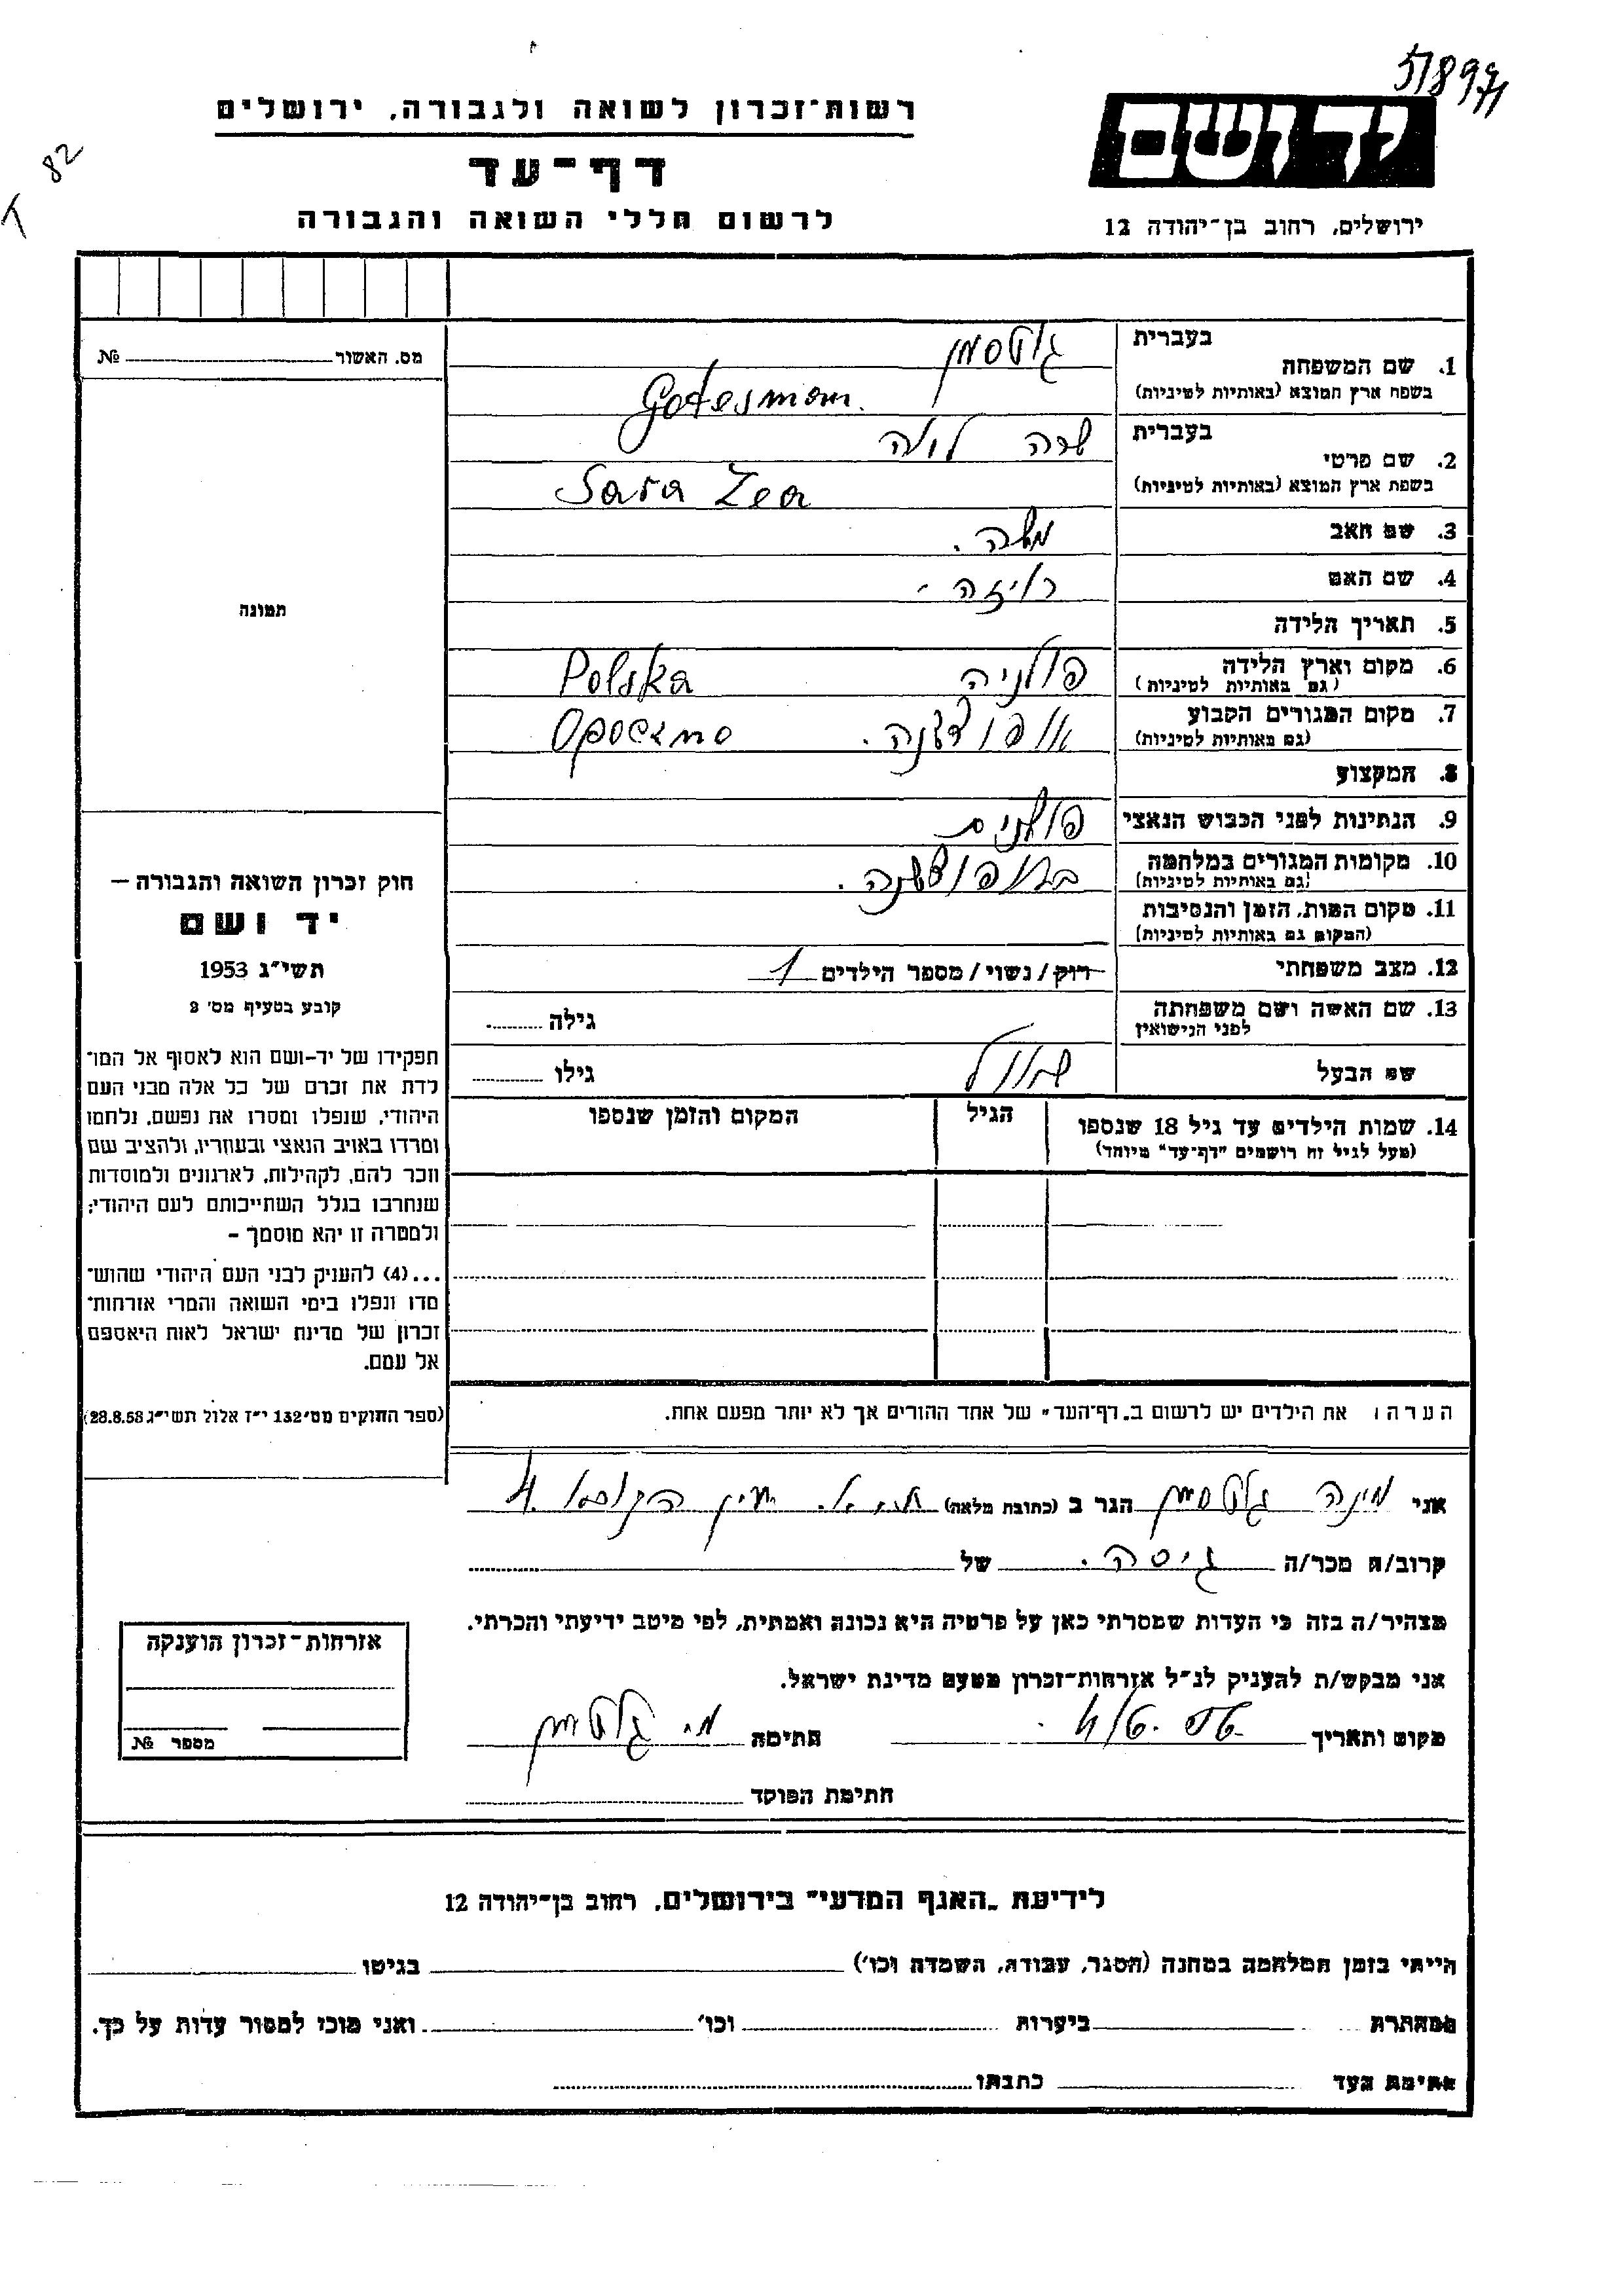 51897
רשות־זכרון לשואה ולגבורה, ירושלים
82
T
דף־עד
לרשום חללי השואה והגבורה
יד ושם
ירושלים, רחוב בן־יהודה 12
מס. האשור № 
בעברית
1. שם המשפחה
בשפת ארץ המוצא (באותיות לטיניות)
גוטסמן
Gotesman.
בעברית
2. שם פרטי
בשפת ארץ המוצא (באותיות לטיניות)
שרה לאה
Sara Lea
3. שם האב משה.
4. שם האם רייזה
5. תאריך הלידה
6. מקום וארץ הלידה
(גם באותיות לטיניות)
פולניה Polska
7. מקום המגורים הקבוע
(גם באותיות לטיניות)
אופוצ'נה. Opoczno
8. המקצוע
9. הנתינות לפני הכבוש הנאצי
10. מקומות המגורים במלחמה
(גם באותיות לטיניות)
באופוצ'נה.
11. מקום המות, הזמן והנסיבות
(המקום גם באותיות לטיניות)
12. מצב משפחתי רוק/נשוי/מספר הילדים 1
13. שם האשה ושם משפחתה
לפני הנישואין
גילה
שם הבעל
גילו
14. שמות הילדים עד גיל 18 שנספו
(מעל לגיל זה רושמים "דף־עד" מיוחד)
הגיל
המקום והזמן שנספו
תמונה
חוק זכרון השואה והגבורה –
יד ושם
תשי״ג 1953
קובע בסעיף מס׳ 2
תפקידו של יד-ושם הוא לאסוף אל המו־
לדת את זכרם של כל אלה מבני העם
היהודי, שנפלו ומסרו את נפשם, נלחמו
ומרדו באויב הנאצי ובעוזריו, ולהציב שם
וזכר להם, לקהילות, לארגונים ולמוסדות
שנחרבו בגלל השתייכותם לעם היהודי;
ולמטרה זו יהא מוסמך –
...(4) להעניק לבני העם היהודי שהוש־
מדו ונפלו בימי השואה והמרי אזרחות־
זכרון של מדינת ישראל לאות היאספם
אל עמם.
(ספר החוקים מס׳ 132 י״ז אלול תשי״ג 28.8.53)
הערה: את הילדים יש לרשום ב„דף־העד״ של אחד ההורים אך לא יותר מפעם אחת.
אני מינה גוטסמן הגר ב (כתובת מלאה)
קרוב/ה מכר/ה גיסה. של
מצהיר/ה בזה כי העדות שמסרתי כאן על פרטיה היא נכונה ואמתית, לפי מיטב ידיעתי והכרתי.
אני מבקש/ת להעניק לנ״ל אזרחות־זכרון מטעם מדינת ישראל.
מקום ותאריך
חתימה מ. גוטסמן
חתימת הפוקד
אזרחות־זכרון הוענקה
מספר №
לידיעת „האגף המדעי״ בירושלים, רחוב בן־יהודה 12
הייתי בזמן המלחמה במחנה (הסגר, עבודה, השמדה וכו׳) בגיטו
במחתרת ביערות וכו׳ ואני מוכן למסור עדות על כך.
חתימת העד כתבתו